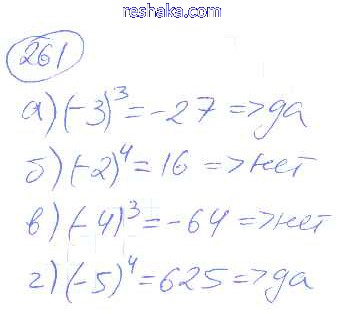 reshaka.com
261
а) (-3)³ = -27 => да
б) (-2)⁴ = 16 => нет
в) (-4)³ = -64 => нет
г) (-5)⁴ = 625 => да